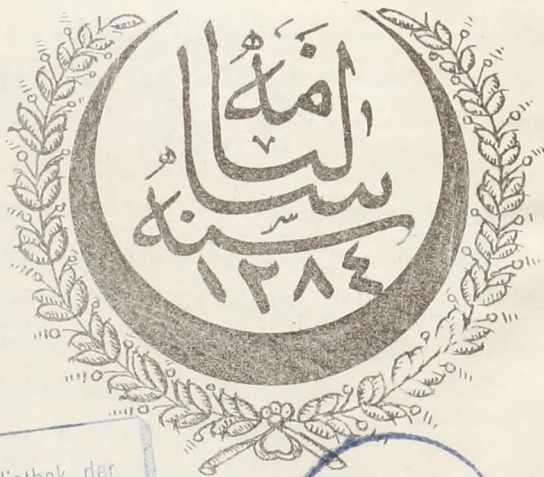 سالنامه
سنه
١٢٨٤
bliothek der